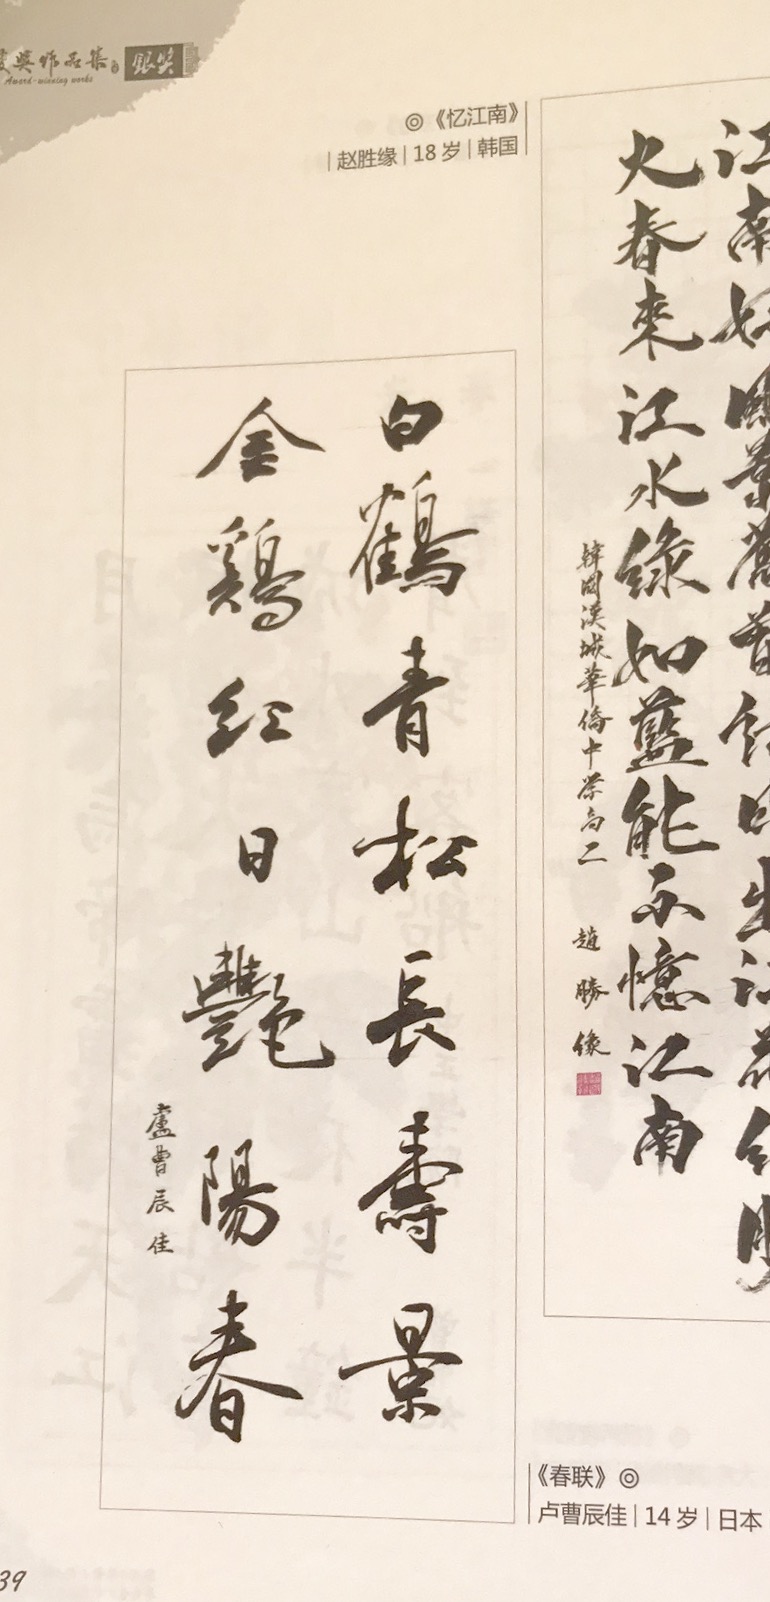 獎作品集 銀奖
Award-winning works
◎《忆江南》
赵胜缘 18岁 韩国
江南好風景舊曾
江花
火春來江水綠如藍能不憶江南
韓國漢城華僑中学高二 趙勝緣
白鶴青松長壽景
金鷄紅日艷陽春
盧曹辰佳
《春联》◎
卢曹辰佳 14岁 日本
39